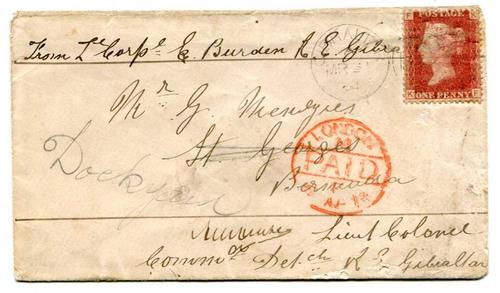 From Lce Corpl E. Burden R E Gibra
POSTAGE
ONE PENNY
Mr G. Menzies
St Georges
Bermuda
Dockyard
LONDON
PAID
AP
Lieut Colonel
Commg Detch R.E. Gibraltar